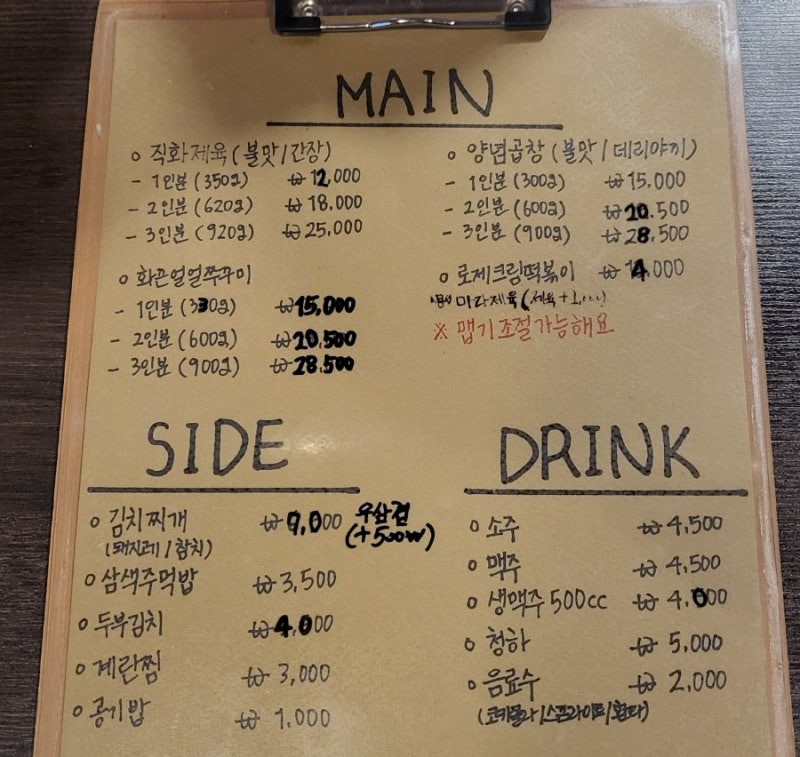 MAIN
○ 직화제육 (불맛/간장)
- 1인분 (350g) ₩ 12,000
- 2인분 (620g) ₩ 18.000
- 3인분 (920g) ₩ 25,000
○ 화끈얼얼쭈꾸미
- 1인분 (330g) ₩15,000
- 2인분 (600g) ₩20,500
- 3인분 (900g) ₩28,500
○ 양념곱창 (불맛/데리야끼)
- 1인분 (300g) ₩15.000
- 2인분 (600g) ₩20.500
- 3인분 (900g) ₩28,500
○ 로제크림떡볶이 ₩ 14,000
마라제육 (제육+
※ 맵기조절가능해요
SIDE
○ 김치찌개 ₩9,000 우삼겹
(돼지고기/참치) (+500₩)
○ 삼색주먹밥 ₩3,500
○ 두부김치 ₩4.000
○ 계란찜 ₩ 3,000
○ 공기밥 ₩ 1.000
DRINK
○ 소주 ₩ 4,500
○ 맥주 ₩ 4,500
○ 생맥주 500cc ₩ 4.000
○ 청하 ₩ 5,000
○ 음료수 ₩ 2,000
(코카콜라/스프라이트/환타)